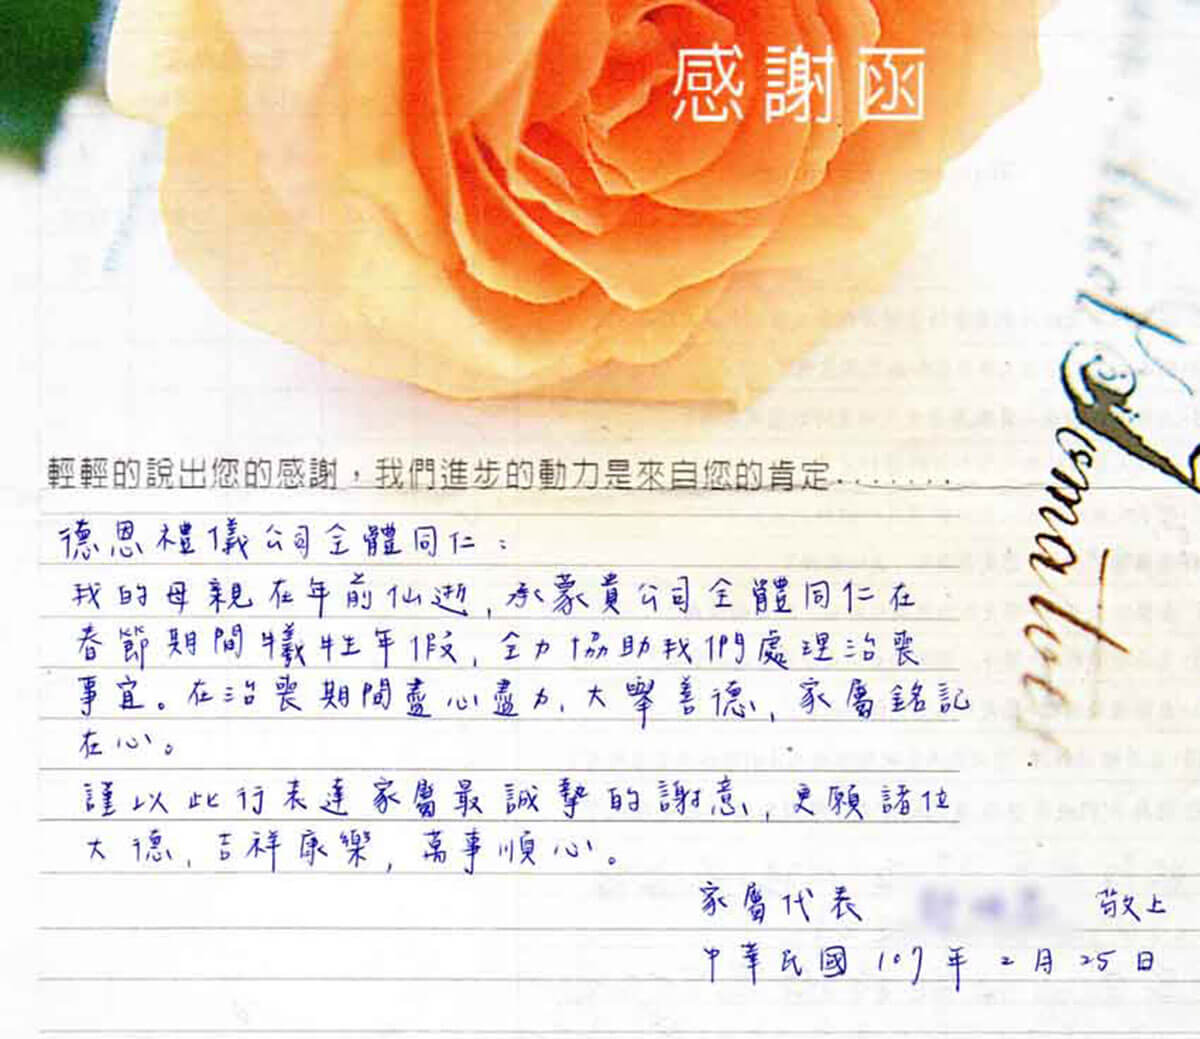 感謝函
輕輕的說出您的感謝，我們進步的動力是來自您的肯定.......
德恩禮儀公司全體同仁：
我的母親在年前仙逝，承蒙貴公司全體同仁在
春節期間犧牲年假，全力協助我們處理治喪
事宜。在治喪期間盡心盡力，大舉善德，家屬銘記
在心。
謹以此行表達家屬最誠摯的謝意，更願諸位
大德，吉祥康樂，萬事順心。
家屬代表 敬上
中華民國107年2月25日